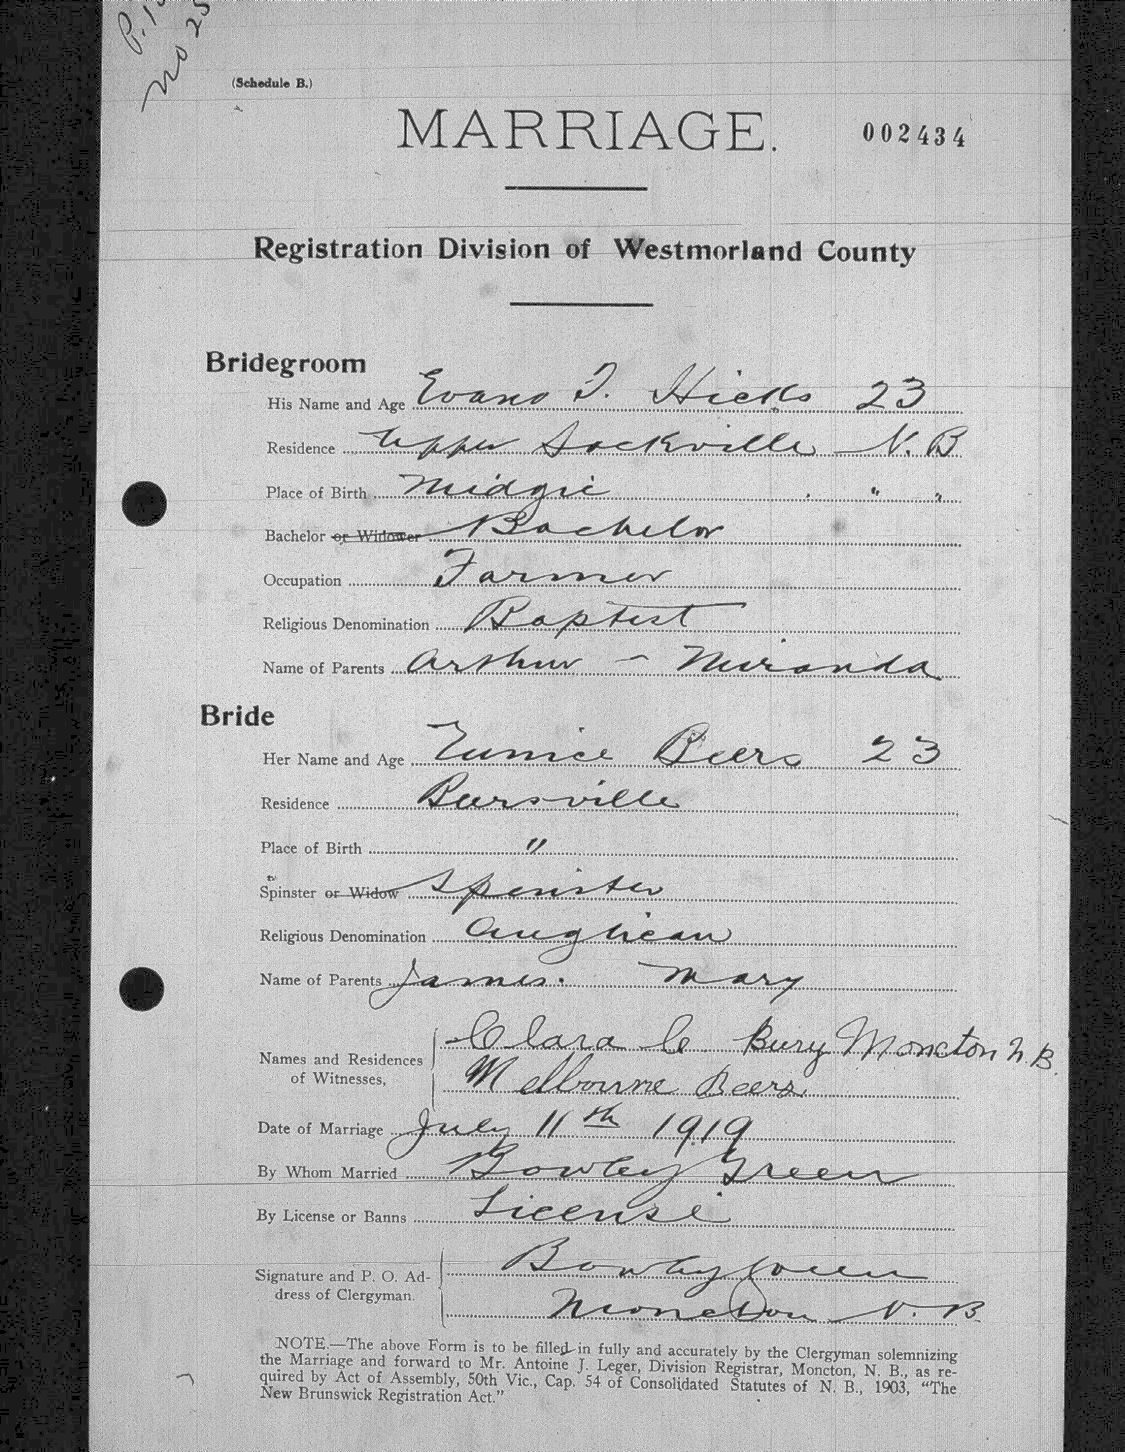 P. 1
No 25
(Schedule B.)
MARRIAGE.
002434
Registration Division of Westmorland County
Bridegroom
His Name and Age Evans T. Hicks 23
Residence Upper Sackville N. B
Place of Birth Midgic " "
Bachelor or Widower Bachelor
Occupation Farmer
Religious Denomination Baptist
Name of Parents Arthur - Miranda
Bride
Her Name and Age Eunice Beers 23
Residence Beersville
Place of Birth "
Spinster or Widow Spinster
Religious Denomination Anglican
Name of Parents James. Mary
Names and Residences of Witnesses, Clara C Bury Moncton N. B.
Melbourne Beers
Date of Marriage July 11th 1919
By Whom Married Bowley Green
By License or Banns License
Signature and P. O. Ad-
dress of Clergyman. Bowley Green
Moncton N. B.
NOTE.—The above Form is to be filled in fully and accurately by the Clergyman solemnizing
the Marriage and forward to Mr. Antoine J. Leger, Division Registrar, Moncton, N. B., as re-
quired by Act of Assembly, 50th Vic., Cap. 54 of Consolidated Statutes of N. B., 1903, “The
New Brunswick Registration Act.”